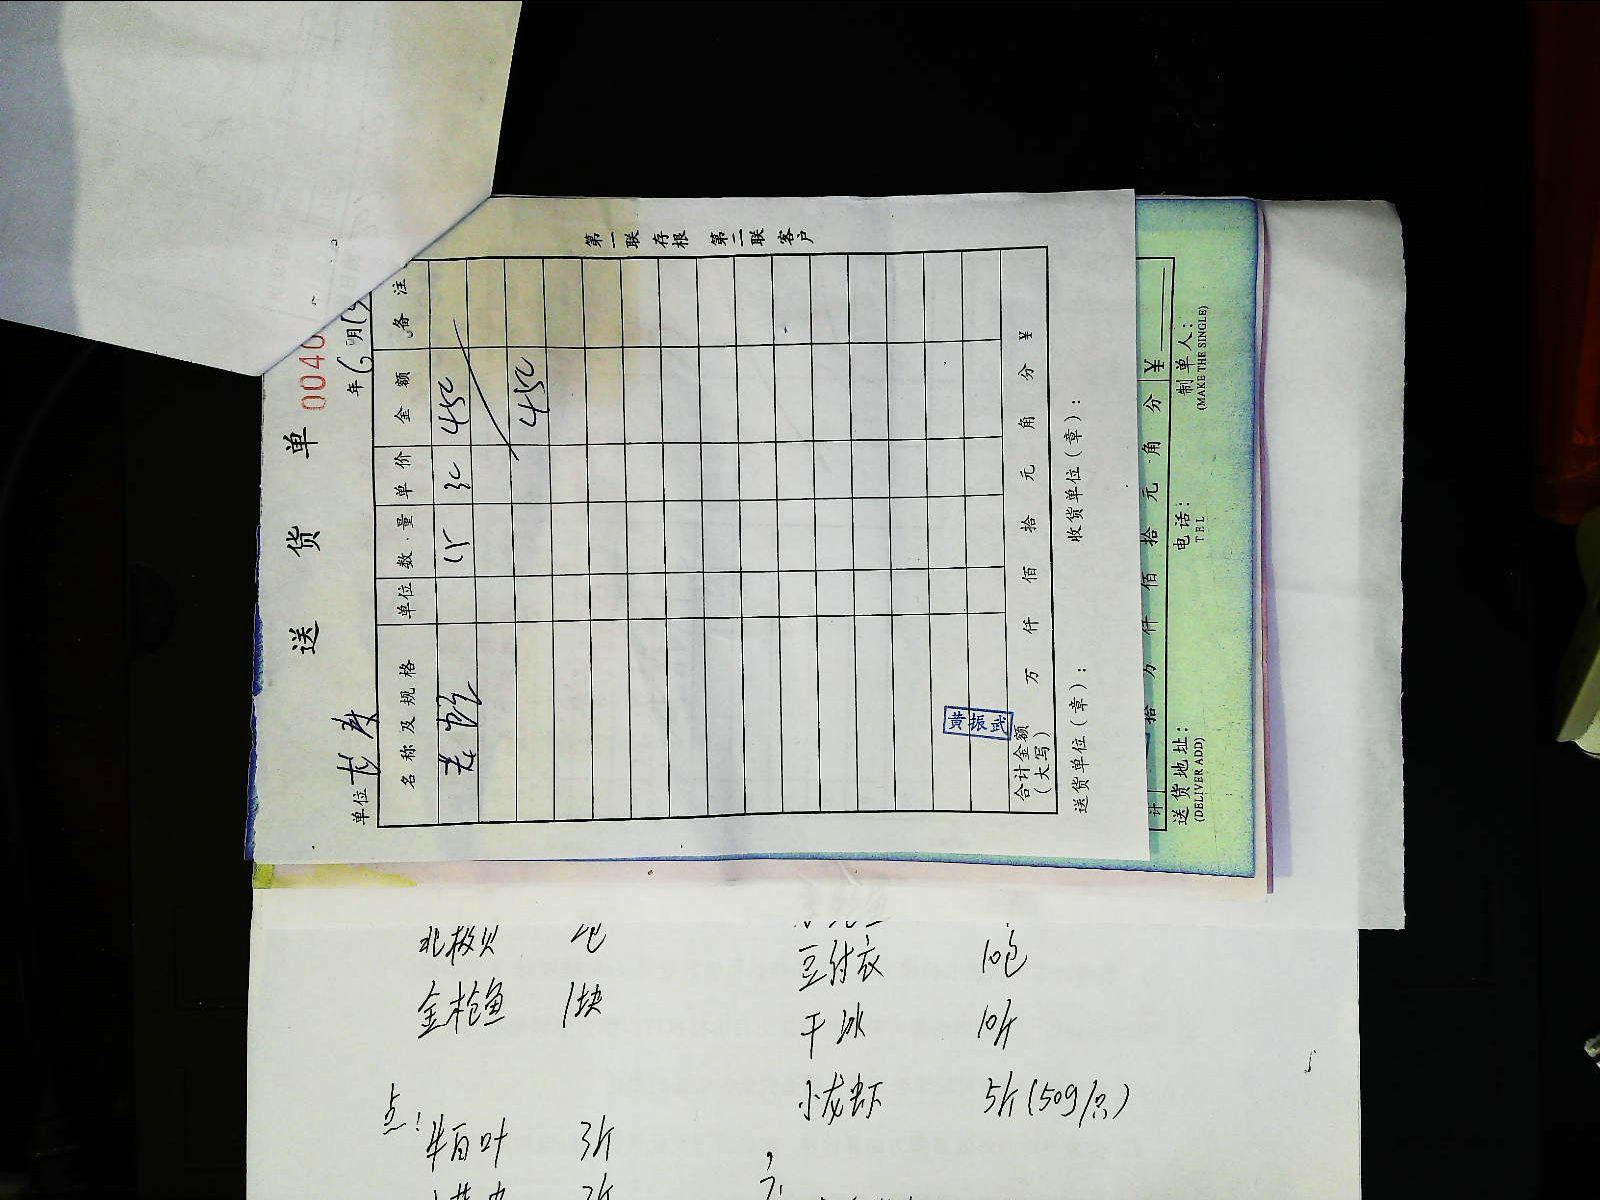 送 货 单
0040
单位
年6月15
名称及规格 单位 数量 单价 金额 备注
15 30 450
450
第一联 存根 第二联 客户
黄振武
合计金额(大写) 万 仟 佰 拾 元 角 分 ¥
送货单位(章): 收货单位(章):
计 拾 万 仟 佰 拾 元 角 分 ¥
送货地址: 电话: 制单人:
(DELIVER ADD) TEL (MAKE THE SINGLE)
北极贝
金枪鱼 1块
豆付衣 10包
干冰 10斤
小龙虾 5斤(50g/只)
点:
牛百叶 3斤